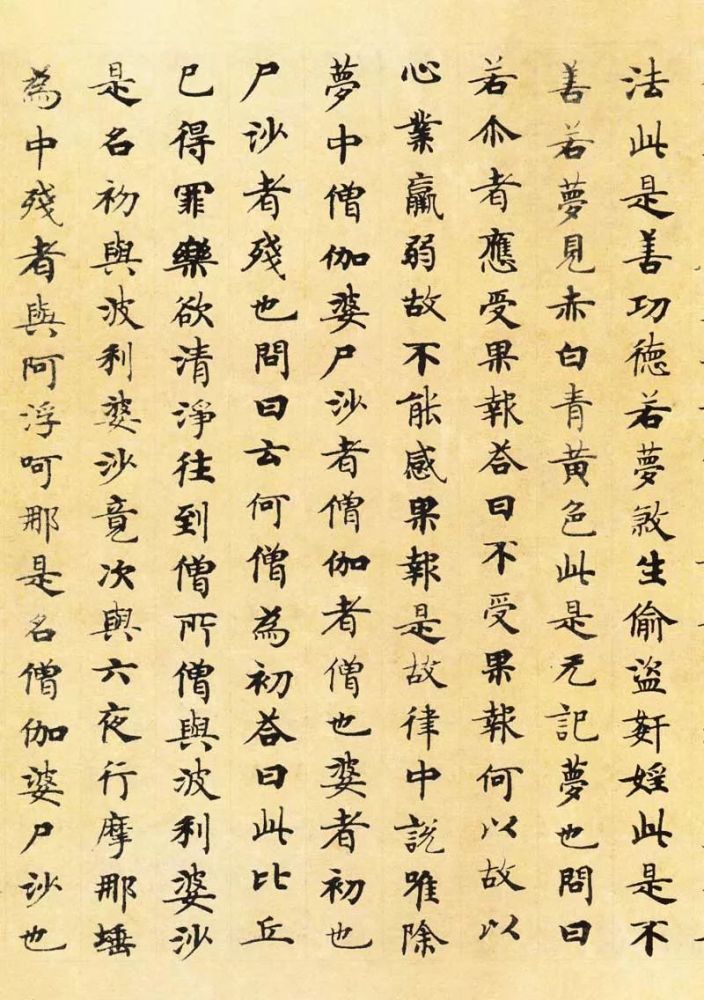 法此是善功徳若夢煞生偷盜姧婬此是不
善若夢見赤白青黃色此是无記夢也問曰
若尒者應受果報荅曰不受果報何以故以
心業羸弱故不能感果報是故律中說唯除
夢中僧伽婆尸沙者僧伽者僧也婆者初也
尸沙者殘也問曰云何僧為初荅曰此比丘
已得罪樂欲清淨往到僧所僧與波利婆沙
是名初與波利婆沙竟次與六夜行摩那埵
為中殘者與阿浮呵那是名僧伽婆尸沙也